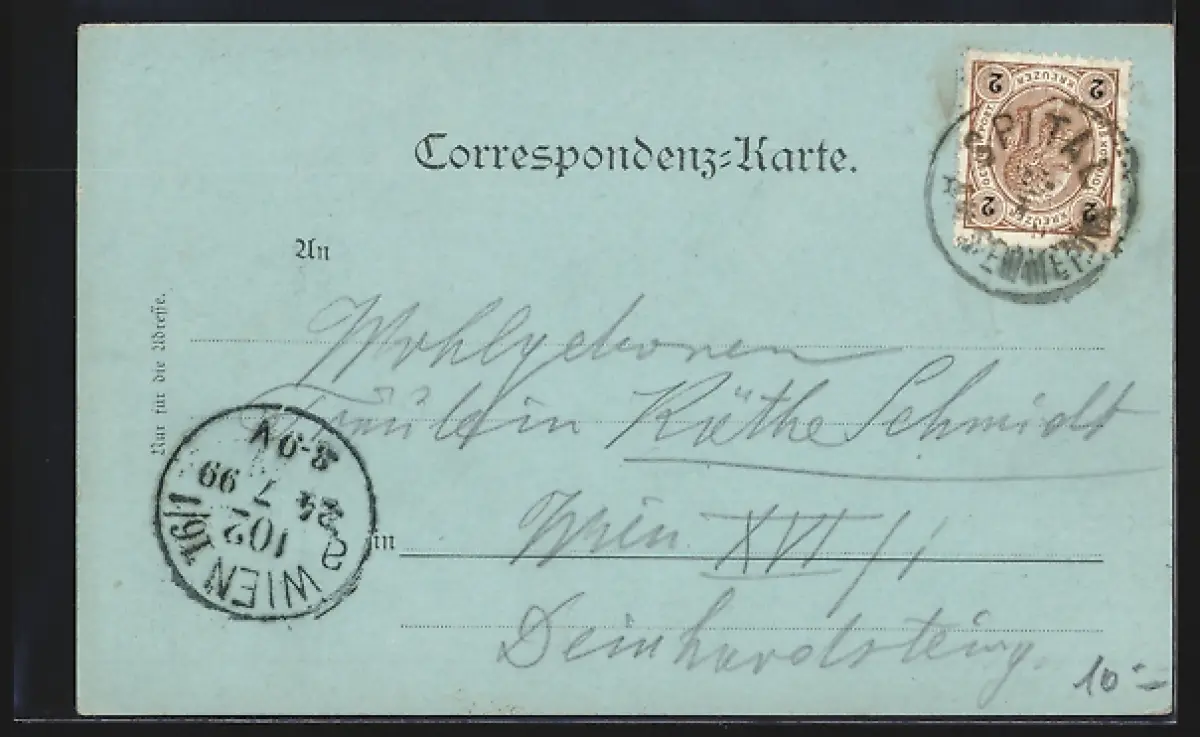 Correspondenz-Karte.
2 KREUZER 2
2 KREUZER 2
SPITAL
SEMMERING
An
Nur für die Adresse.
Wohlgeboren
Fräulein Käthe Schmidt
in Wien XVI/1
Deinhardsteing.
WIEN 16/1
102
24 7 99
10-